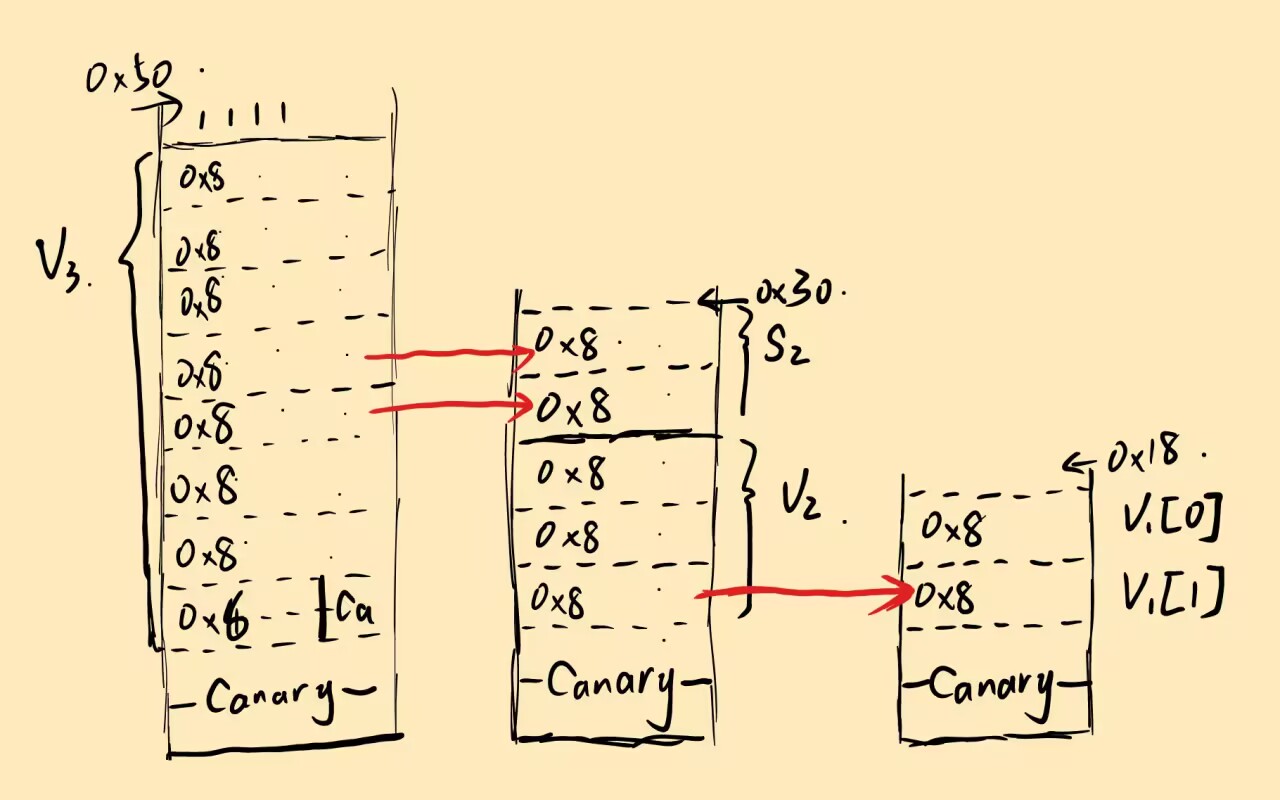 0x50
0x8
0x8
0x8
V3.
0x8
0x8
0x8
0x8
0x6 Ca
Canary
0x30
0x8
S2
0x8
0x8
V2
0x8
0x8
Canary
0x18
0x8
V1[0]
0x8
V1[1]
Canary